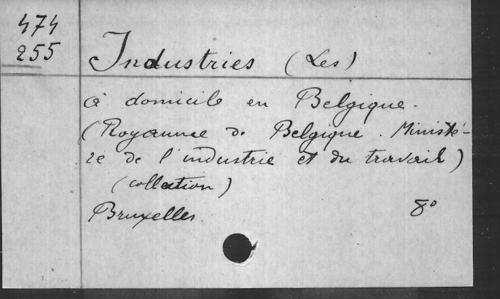 474
255
Industries (Les)
à domicile en Belgique.
(Royaume de Belgique. Ministè-
re de l'industrie et du travail)
(collection)
Bruxelles 8°